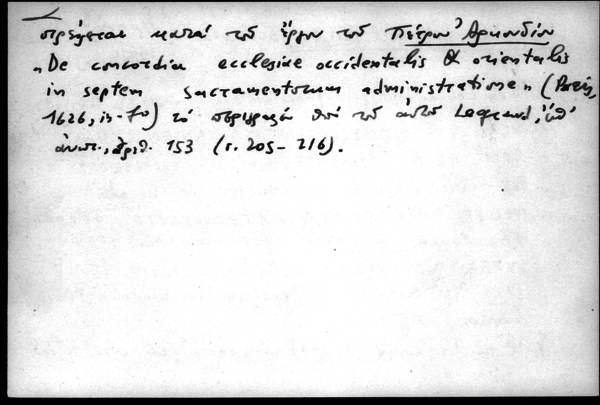 στρέφεται κατά τοῦ ἔργου τοῦ Πέτρου Ἀρκουδίου
"De concordia ecclesiae occidentalis & orientalis
in septem sacramentorum administratione" (Paris,
1626, in-f⁰) τό περιγραφέν ὑπό τοῦ αὐτοῦ Legrand, ἔνθ'
ἀνωτ., ἀριθ. 153 (τ. 205-216).